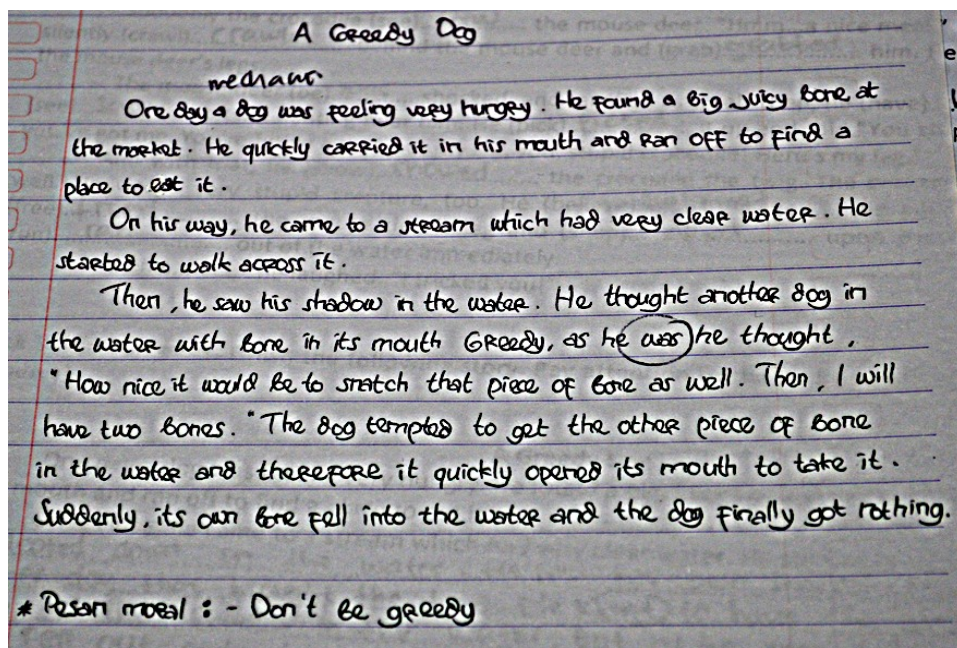 A Greedy Dog
One day a dog was feeling very hungry. He found a big juicy bone at
the market. He quickly carried it in his mouth and ran off to find a
place to eat it.
On his way, he came to a stream which had very clear water. He
started to walk across it.
Then, he saw his shadow in the water. He thought another dog in
the water with bone in its mouth Greedy, as he was he thought,
"How nice it would be to snatch that piece of bone as well. Then, I will
have two bones." The dog tempted to get the other piece of bone
in the water and therefore it quickly opened its mouth to take it.
Suddenly, its own bone fell into the water and the dog finally got nothing.
* Pesan moral : - Don't be greedy